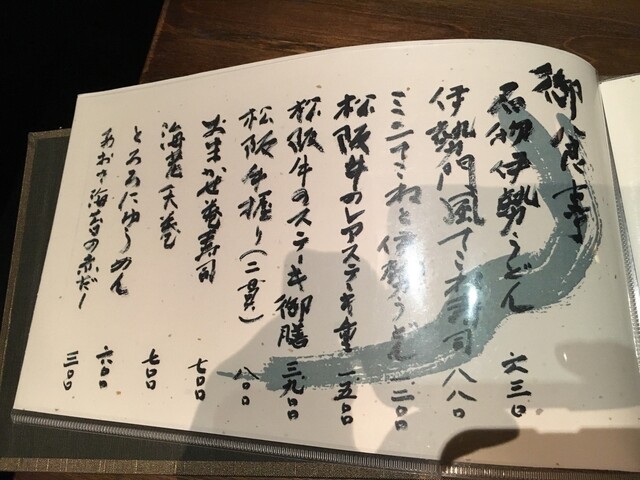 御食事
名物伊勢うどん 六三〇
伊勢門風てこね寿司 八八〇
ミニてこねと伊勢うどん 一二〇〇
松阪牛のレアステーキ重 一五〇〇
松阪牛のステーキ御膳 三九〇〇
松阪牛握り(二貫) 八〇〇
おまかせ巻寿司 七〇〇
海老天巻 七〇〇
とろろにゅうめん 六〇〇
あおさ海苔の赤だし 三〇〇